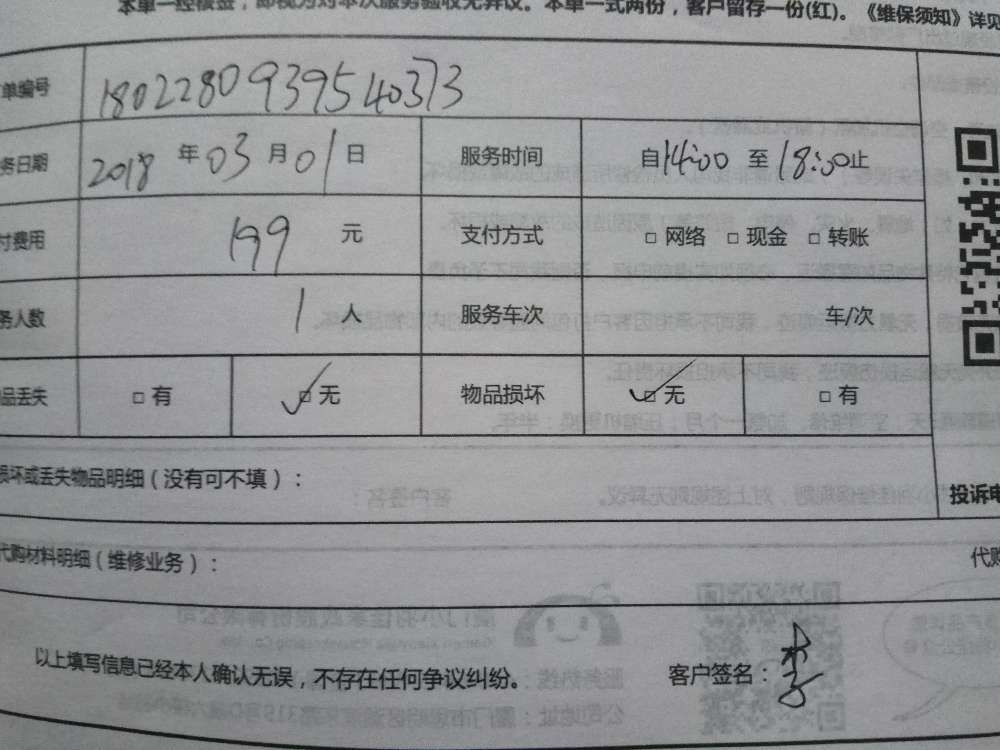 本单一经核签，即视为对本次服务验收无异议。本单一式两份，客户留存一份(红)。《维保须知》详见
单编号 1802280939540373
务日期 2018 年 03 月 01 日 服务时间 自14:00 至 18:00止
付费用 199 元 支付方式 □ 网络 □ 现金 □ 转账
务人数 1 人 服务车次 车/次
品丢失 □ 有 ☑ 无 物品损坏 ☑ 无 □ 有
损坏或丢失物品明细（没有可不填）：
投诉电
代购材料明细（维修业务）：
代购
以上填写信息已经本人确认无误，不存在任何争议纠纷。 客户签名：李